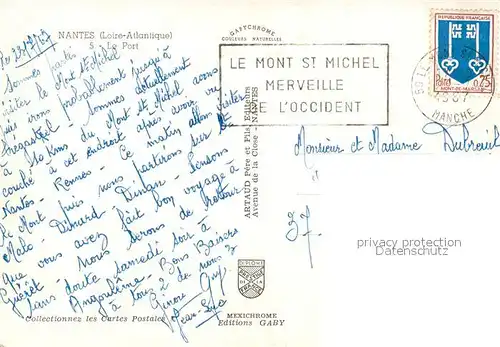 NANTES (Loire-Atlantique)
5 - Le Port
le 23/3/69
Sommes partis
visiter le Mont St Michel
puis irons probablement jusqu'à
Sommes actuellement
à 50 Kms du Mont St Michel avons
couché à cet endroit après avoir vu
Nantes - Rennes - Ce matin allons visiter
le Mont puis nous partirons sur St
Malo - Dinard - Dinan - Pensons
que vous avez fait bon voyage à
Guéret - Nous serons de retour
sans doute samedi soir à
Angoulême - Bons Baisers
à tous 2 de nous 3
Guy
Jean-Luc
Collectionnez les Cartes Postales
GABYCHROME
COULEURS NATURELLES
ARTAUD Père et Fils, Editeurs
Avenue de la Close - NANTES
DIPLOME
MEXICHROME
Editions GABY
LE MONT ST MICHEL
MERVEILLE
DE L'OCCIDENT
REPUBLIQUE FRANCAISE
0,75
MONT-DE-MARSAN
MANCHE
Monsieur et Madame Dubreuil
37
privacy protection
DELCAMPE